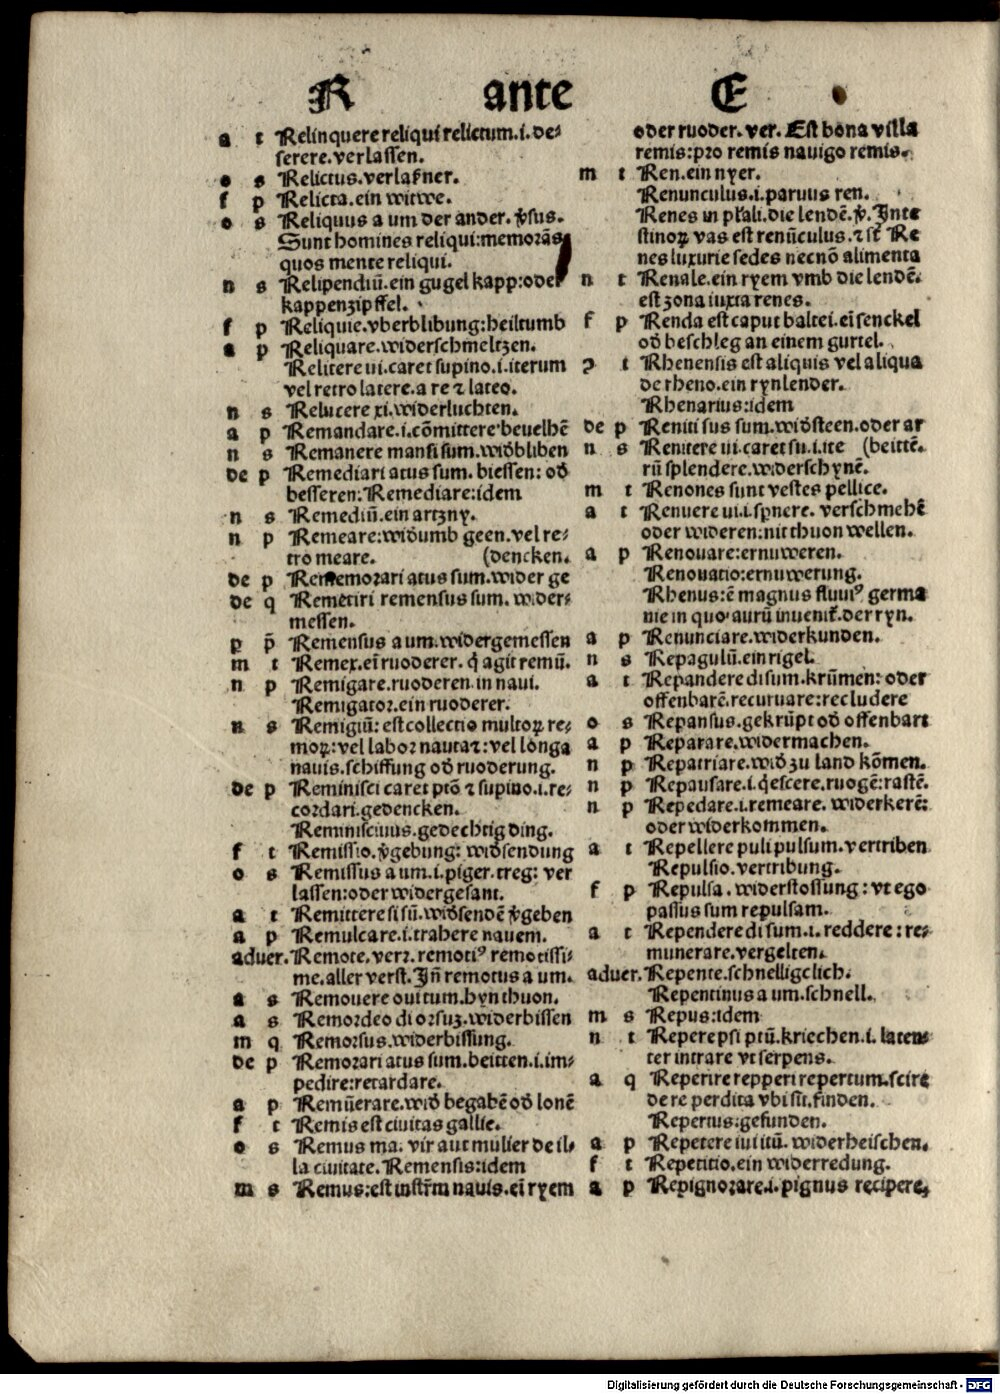 R ante E
a t Relinquere reliqui relictum.i.de⸗
serere.verlassen.
o s Relictus.verlaßner.
f p Relicta.ein witwe.
o s Reliquus a um der ander. v̊sus.
Sunt homines reliqui:memorās
quos mente reliqui.
n s Relipendiū.ein gugel kapp:oder
kappenzipffel.
f p Reliquie.vberblibung:heiltumb
a p Reliquare.widerschmeltzen.
Relitere ui.caret supino.i.iterum
vel retro latere.a re ⁊ lateo.
n s Relucere xi.widerluchten.
a p Remandare.i.cōmittere beuelhē
n s Remanere mansi sum.wid̄bliben
de p Remediari atus sum. biessen: od̄
besseren:Remediare:idem
n s Remediū.ein artzny.
n p Remeare:wid̄umb geen.vel re⸗
tro meare. (dencken.
de p Rememorari atus sum.wider ge
de q Remetiri remensus sum. wider⸗
messen.
p p̄ Remensus a um.widergemessen
m t Remex.eī ruoderer. q̇ agit remū.
n p Remigare.ruoderen in naui.
Remigator.ein ruoderer.
n s Remigiū: est collectio multoꝝ re⸗
moꝝ:vel labor nautaꝝ:vel longa
nauis.schiffung od̄ ruoderung.
de p Reminisci caret ptō ⁊ supino.i.re⸗
cordari.gedencken.
Reminiscinus.gedechtig ding.
f t Remissio.v̊gebung: wid̄sendung
o s Remissus a um.i.piger.treg: ver
lassen:oder widergesant.
a t Remittere si sū.wid̄sendē v̊geben
a p Remulcare.i.trahere nauem.
aduer. Remote.verꝛ.remotiꝰ remotissi⸗
me.aller verst. Jn̄ remotus a um.
a s Remouere oui tum.hyn thuon.
a s Remordeo di orsuꝫ.widerbissen
m q Remorsus.widerbissung.
de p Remorari atus sum.beitten.i.im⸗
pedire:retardare.
a p Remūerare.wid̄ begabē od̄ lonē
f t Remis est ciuitas gallie.
o s Remus ma. vir aut mulier de il⸗
la ciuitate. Remensis:idem
m s Remus:est instrm̄ nauis.eī ryem
oder ruoder. ver. Est bona villa
remis:pro remis nauigo remis.
m t Ren.ein nyer.
Renunculus.i.paruus ren.
Renes in pl̄ali.die lendē.v̊. Jnte
stinoꝝ vas est renūculus.⁊ st̄ Re
nes luxurie sedes necnō alimenta
n t Renale.ein ryem vmb die lendē.
est zona iuxta renes.
f p Renda est caput baltei.eī senckel
od̄ beschleg an einem gurtel.
ꝯ t Rhenensis est aliquis vel aliqua
de rheno.ein rynlender.
Rhenarius:idem
de p Reniti sus sum.wid̄steen.oder ar
n s Renitere ui.caret su.i.ite (beittē.
rū splendere.widerschynē.
m t Renones sunt vestes pellice.
a t Renuere ui.i.spnere. verschmehē
oder wideren:nit thuon wellen.
a p Renouare:ernuweren.
Renouatio:ernuwerung.
Rhenus:ē magnus fluuiꝰ germa
nie in quo aurū inuenit̄.der ryn.
a p Renunciare.widerkunden.
n s Repagulū.ein rigel.
a t Repandere di sum.krūmen: oder
offenbarē.recuruare:recludere
o s Repansus.gekrūpt od̄ offenbart
a p Reparare.widermachen.
n p Repatriare.wid̄ zu land kōmen.
n p Repausare.i.q̇escere.ruogē:rastē.
n p Repedare.i.remeare. widerkerē:
oder widerkommen.
a t Repellere puli pulsum.vertriben
Repulsio.vertribung.
f p Repulsa . widerstossung : vt ego
passus sum repulsam.
a t Rependere di sum.i. reddere : re⸗
munerare.vergelten.
aduer. Repente.schnelligclich.
Repentinus a um.schnell.
m s Repus:idem
n t Repere repsi ptū.kriechen.i. laten⸗
ter intrare vt serpens.
a q Reperire repperi repertum.scire
de re perdita vbi sit.finden.
Repertus:gefunden.
a p Repetere iui itū. widerheischen.
f t Repetitio.ein widerredung.
a p Repignorare.i.pignus recipere,
Digitalisierung gefördert durch die Deutsche Forschungsgemeinschaft - DFG